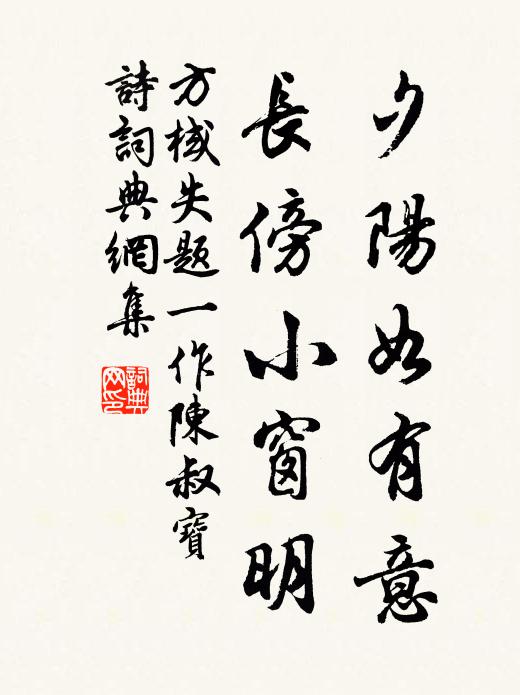 夕陽如有意
長傍小窗明
方棫失题一作陳叔寶
詩詞典網集
詞典网印